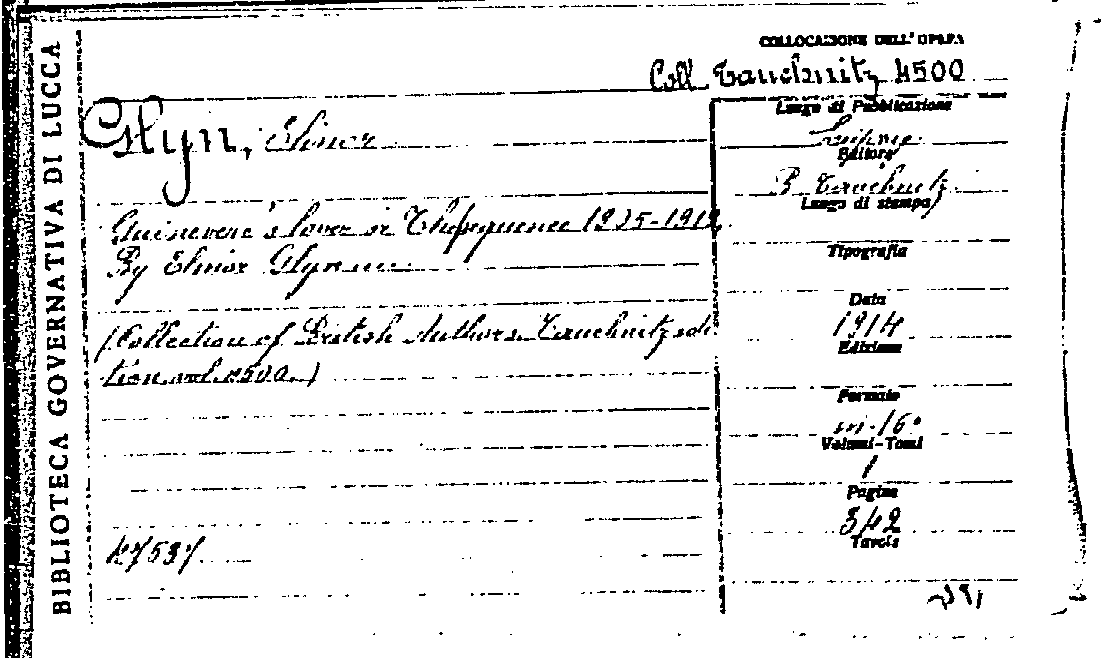 BIBLIOTECA GOVERNATIVA DI LUCCA
COLLOCAZIONE DELL' OPERA
Coll. Tauchnitz 4500
Glyn, Elinor
Guinevere's lover or
By Elinor Glyn
(Collection of British Authors Tauchnitz edi
tion vol. 4500.)
Luogo di Pubblicazione
Editore
B. Tauchnitz
Luogo di stampa
Tipografia
Data
1914
Edizione
Formato
in-16°
Volumi-Tomi
1
Pagine
342
Tavole